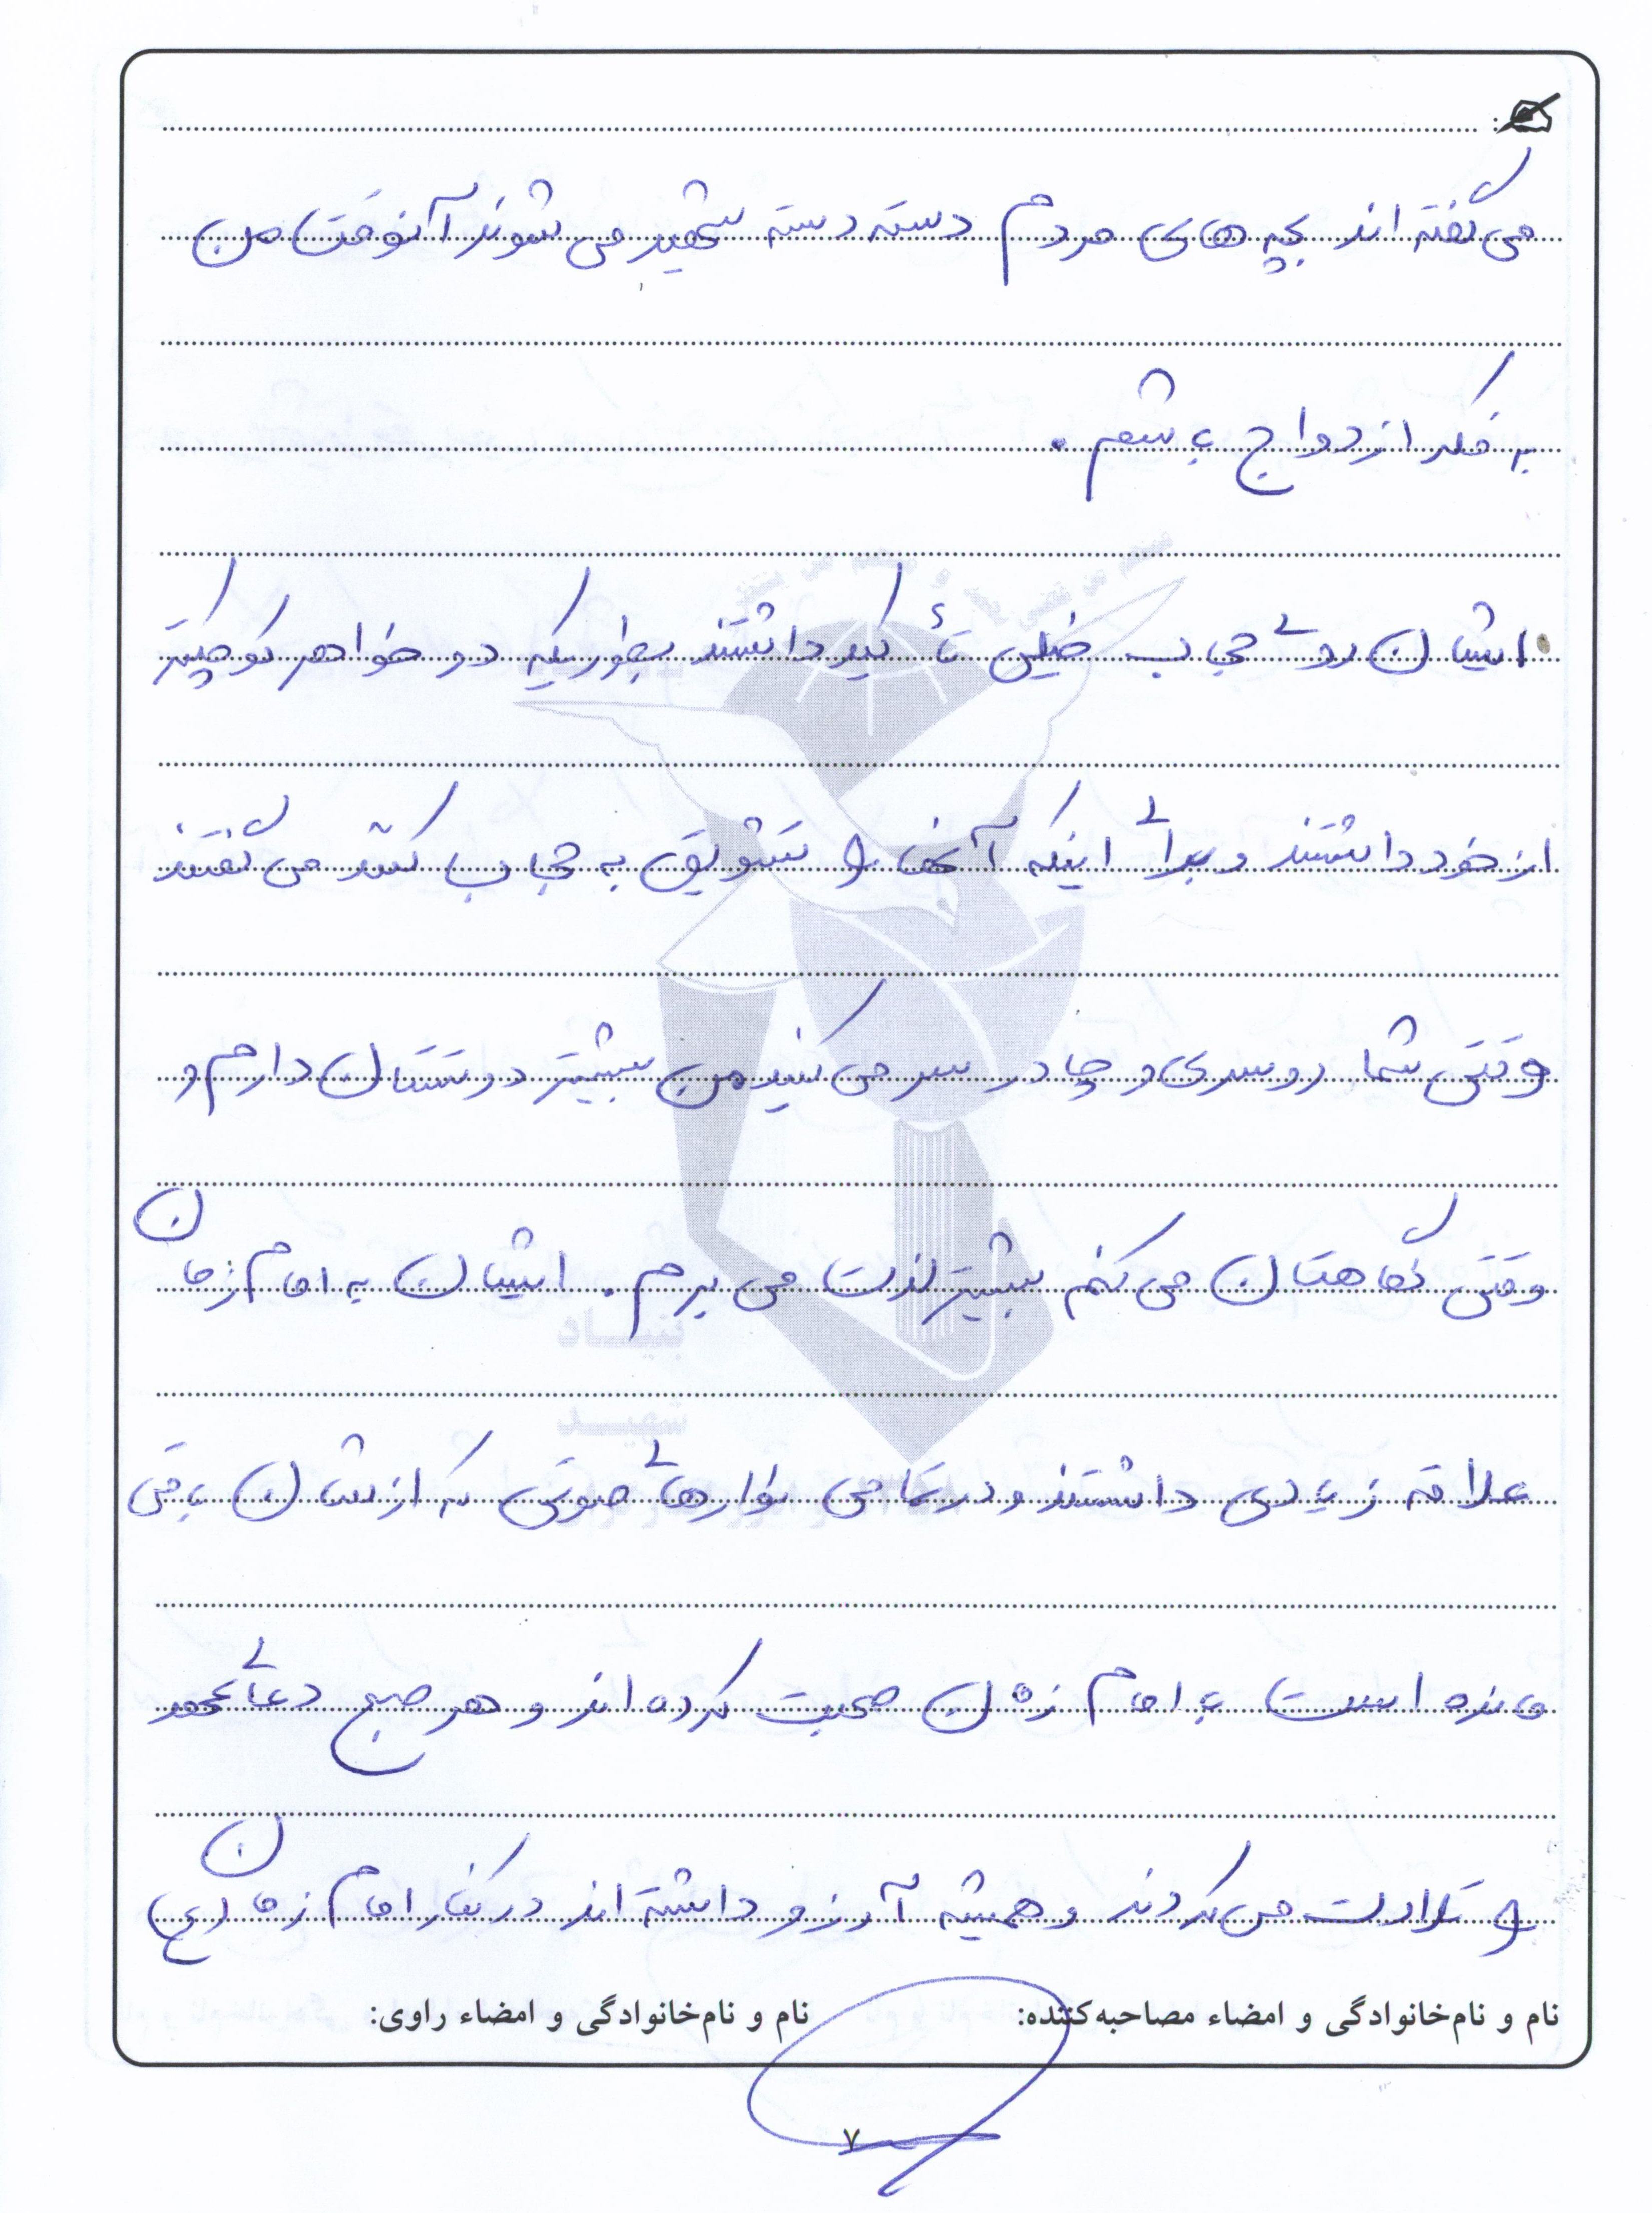 می گفته اند بچه های مردم دسته دسته شهید می شوند آنوقت من
به فکر ازدواج باشم.
ایشان روی حجاب خیلی تأکید داشتند بطوریکه دو خواهر کوچکتر
از خود داشتند و برای اینکه آنها را تشویق به حجاب کنند می گفتند
وقتی شما روسری و چادر سر می کنید من بیشتر دوستتان دارم و
وقتی نگاهتان می کنم بیشتر لذت می برم. ایشان به امام زمان
علاقه زیادی داشتند و در تمامی نوارهای صوتی که ازشان باقی
مانده است با امام زمان صحبت کرده اند و هر صبح دعای عهد
را تلاوت می کردند و همیشه آرزو داشته اند در کنار امام زمان (عج)
نام و نام‌خانوادگی و امضاء مصاحبه‌کننده: نام و نام‌خانوادگی و امضاء راوی:
۷
بنیاد
شهید